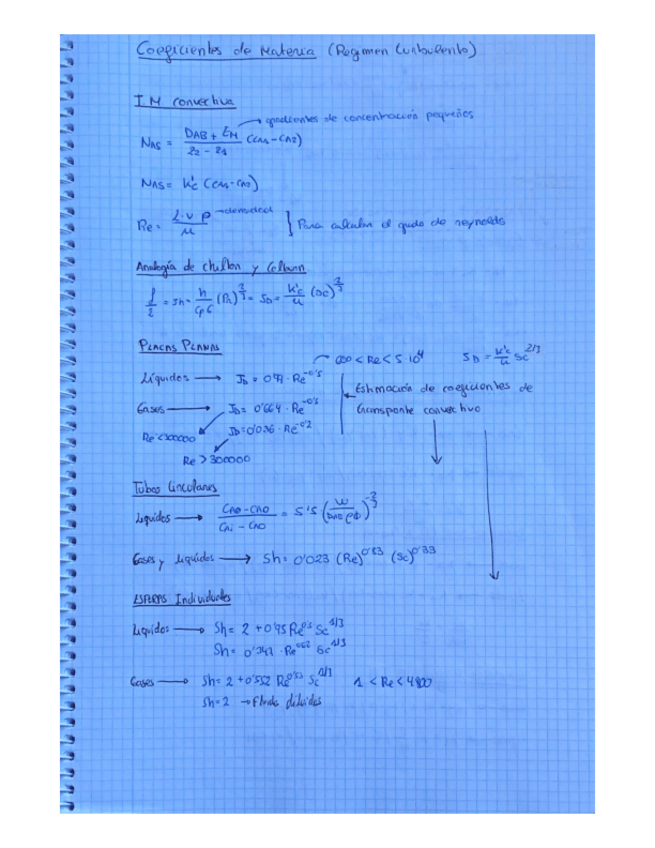 Coeficientes de Materia (Regimen turbulento)
T.M convectiva
→ gradientes de concentración pequeños
NAS = DAB + EM / z2 - z1 (CA1 - CA2)
NAS = k'c (CA1 - CA2)
Re = L·v ρ / μ → densidad } Para calcular el grado de reynolds
Analogía de chilton y Colburn
f/2 = JH = h / Cp G (Pr)^2/3 = JD = k'c / u (Sc)^2/3
PLACAS PLANAS
Líquidos → JD = 0'99 · Re^-0'5
600 < Re < 5 10^4
JD = k'c / u Sc^2/3
Estimación de coeficientes de transporte convectivo
Gases → JD = 0'664 · Re^-0'5
JD = 0'036 · Re^-0'2
Re < 300000
Re > 300000
Tubos Circulares
Líquidos → CA - CA0 / CAi - CA0 = 5'5 (W / DAB ρ)^-2/3
Gases y Líquidos → Sh = 0'023 (Re)^0'83 (Sc)^0'33
ESFERAS Individuales
Líquidos → Sh = 2 + 0'95 Re^0'5 Sc^1/3
Sh = 0'347 · Re^0'62 Sc^1/3
Gases → Sh = 2 + 0'552 Re^0'53 Sc^1/3 1 < Re < 4800
Sh = 2 → Fluidos diluidos